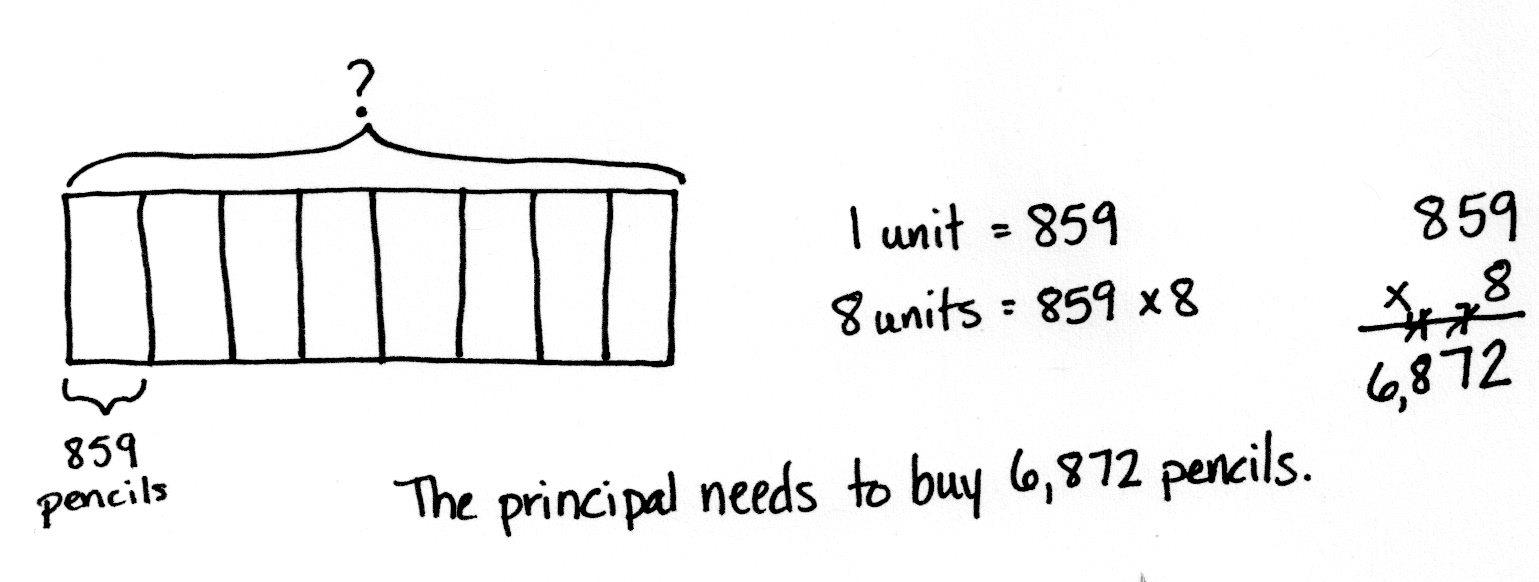 ?
859
pencils
1 unit = 859
8 units = 859 x 8
859
x 8
4 7
6,872
The principal needs to buy 6,872 pencils.